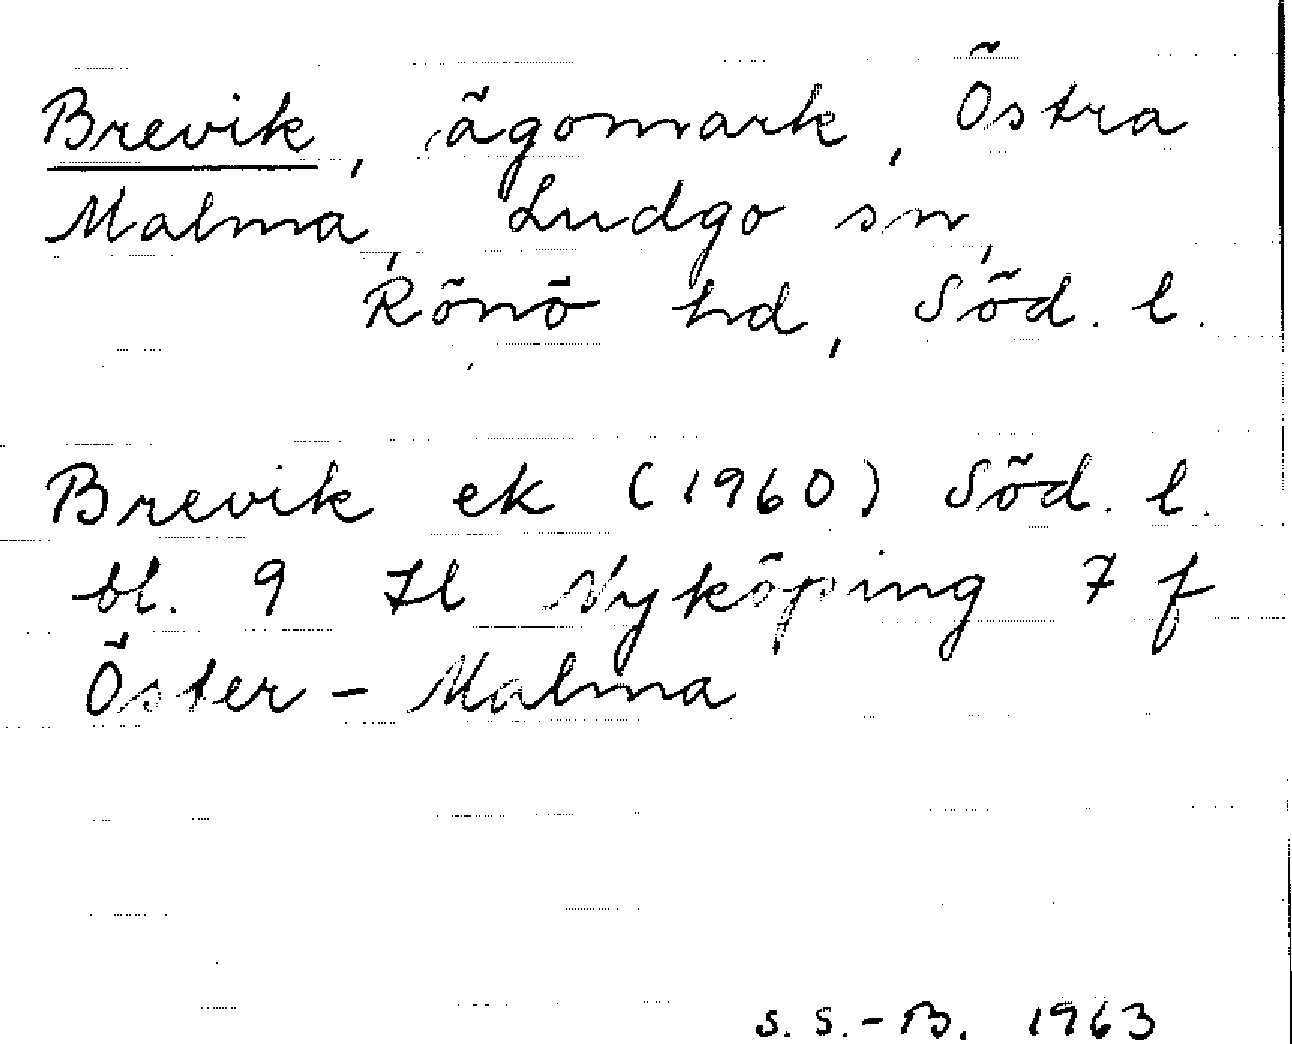 Brevik, ägomark, Östra
Malma, Ludgo sn,
Rönö hd, Söd. l.
Brevik ek (1960) Söd. l.
bl. 9 Il Nyköping 7 f
Öster-Malma
S. S.-B. 1963